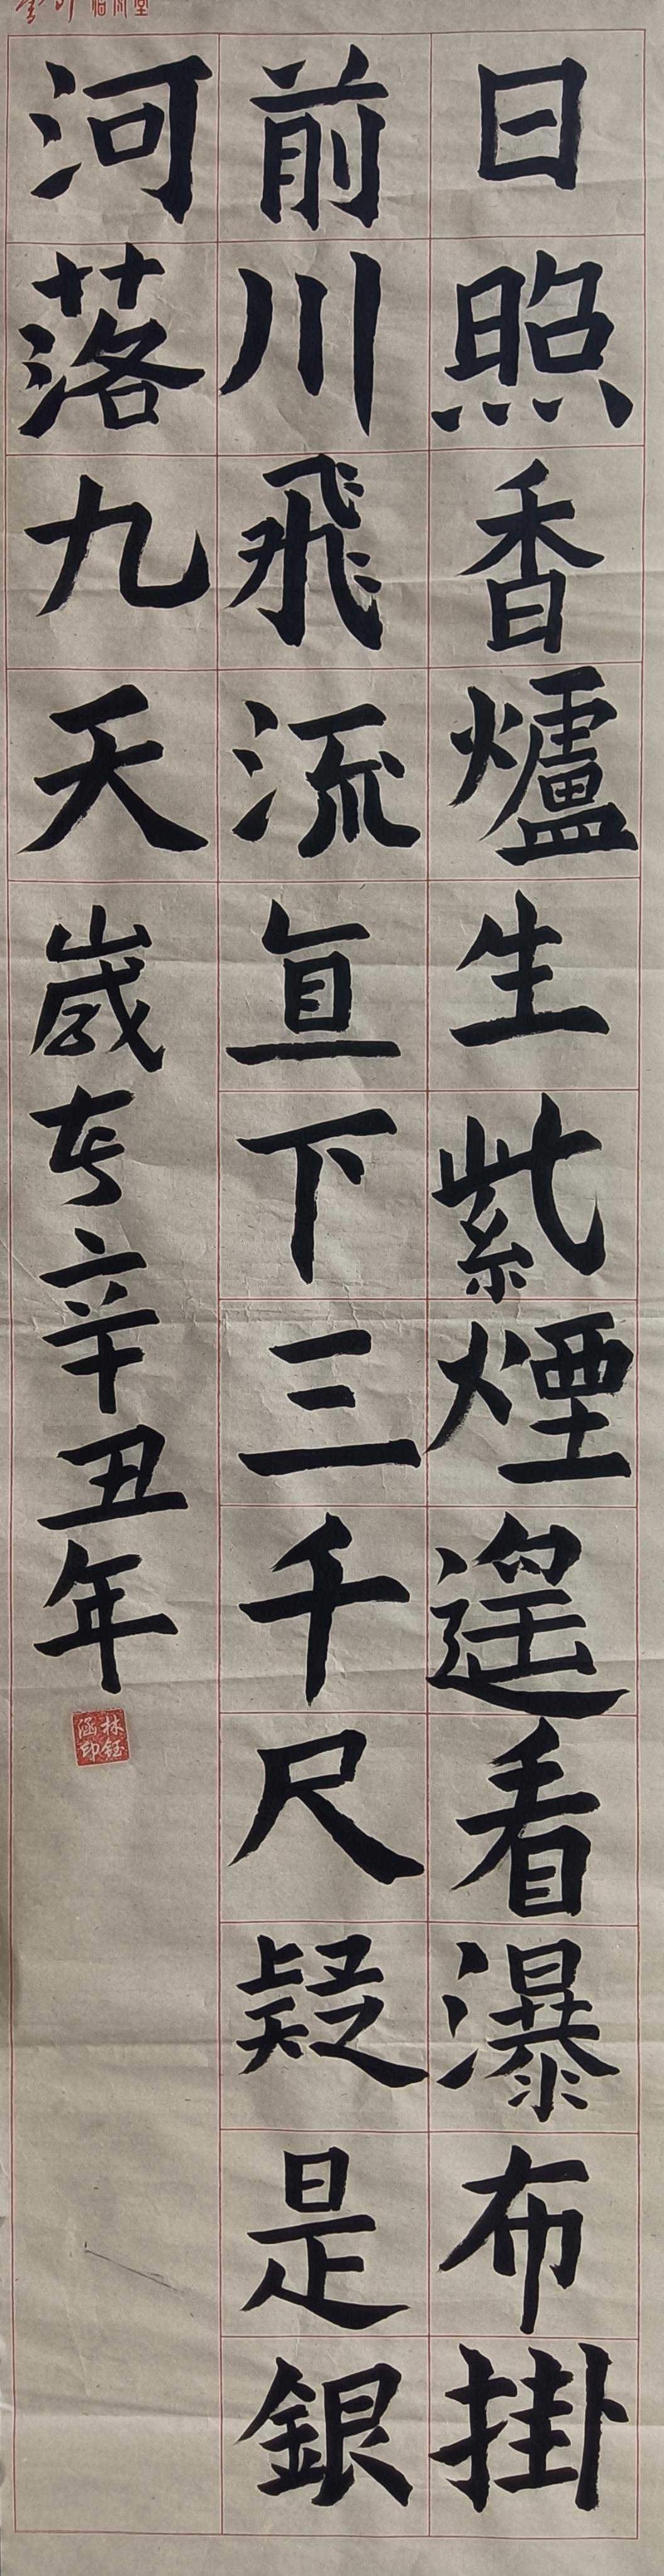 日照香爐生紫煙遥看瀑布掛
前川飛流直下三千尺疑是銀
河落九天
歲在辛丑年
林鈺涵印